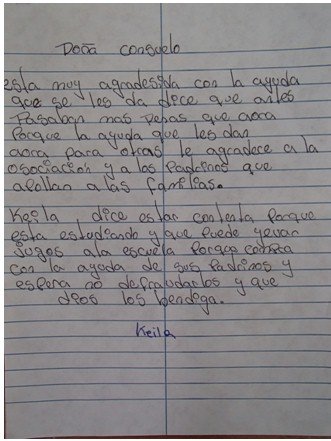 Doña consuelo
esta muy agradesida con la ayuda
que se les da dice que antes
Pasaban mas Penas que aora
Porque la ayuda que les dan
aora para otras le agradece a la
asociacion y a los Padrinos que
apollan a las familias.
Keila dice estar contenta Porque
esta estudiando y que Puede yevar
Jugos ala escuela Porque
con la ayuda de sus Padrinos y
espera no defraudarlos y que
dios los bendiga.
Keila